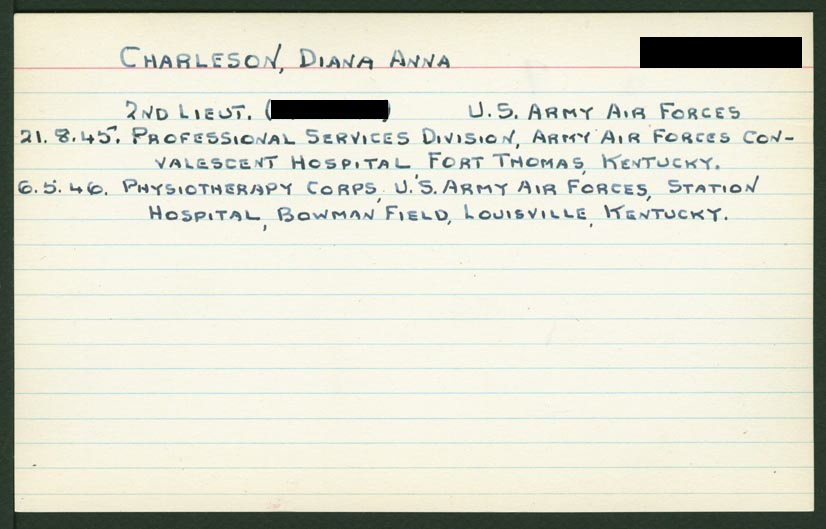 CHARLESON, DIANA ANNA
2ND LIEUT. ( ) U.S. ARMY AIR FORCES
21.8.45. PROFESSIONAL SERVICES DIVISION, ARMY AIR FORCES CON-
VALESCENT HOSPITAL FORT THOMAS, KENTUCKY.
6.5.46. PHYSIOTHERAPY CORPS, U.S. ARMY AIR FORCES, STATION
HOSPITAL, BOWMAN FIELD, LOUISVILLE, KENTUCKY.